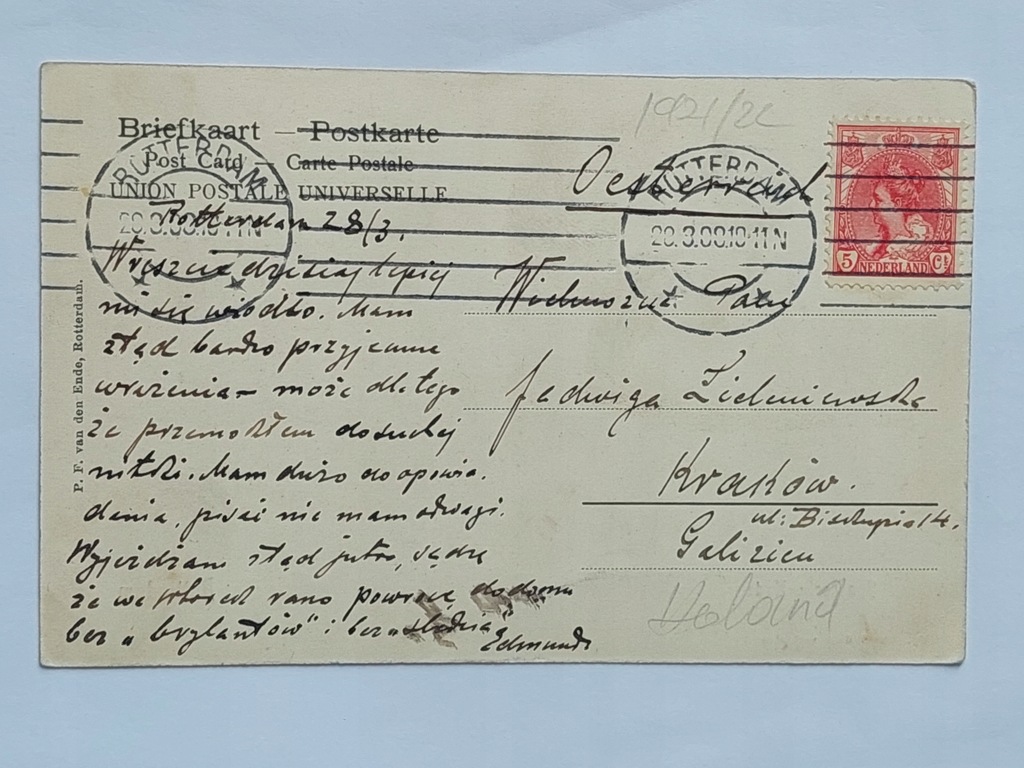 Briefkaart — Postkarte
Post Card — Carte Postale
UNION POSTALE UNIVERSELLE
1921/22
ROTTERDAM
28.3.08.10-11N
ROTTERDAM
28.3.08.10-11N
5 NEDERLAND Ct
Oesterreich
Rotterdam 28/3.
Wreszcie dzisiaj lepiej
mi się wiodło. Mam
stąd bardzo przyjemne
wrażenia – może dlatego
że przemokłem do suchej
nitki. Mam dużo do opowia.
dania, pisać nie mam odwagi.
Wyjeżdżam stąd jutro, sądzę
że we wtorek rano powrócę do domu
bez „brylantów" i bez
Edmund
Wielmożna Pani
Jadwiga Zieleniewska
Kraków.
ul: Biskupia 14.
Galizien
Holand
P. F. van den Ende, Rotterdam.